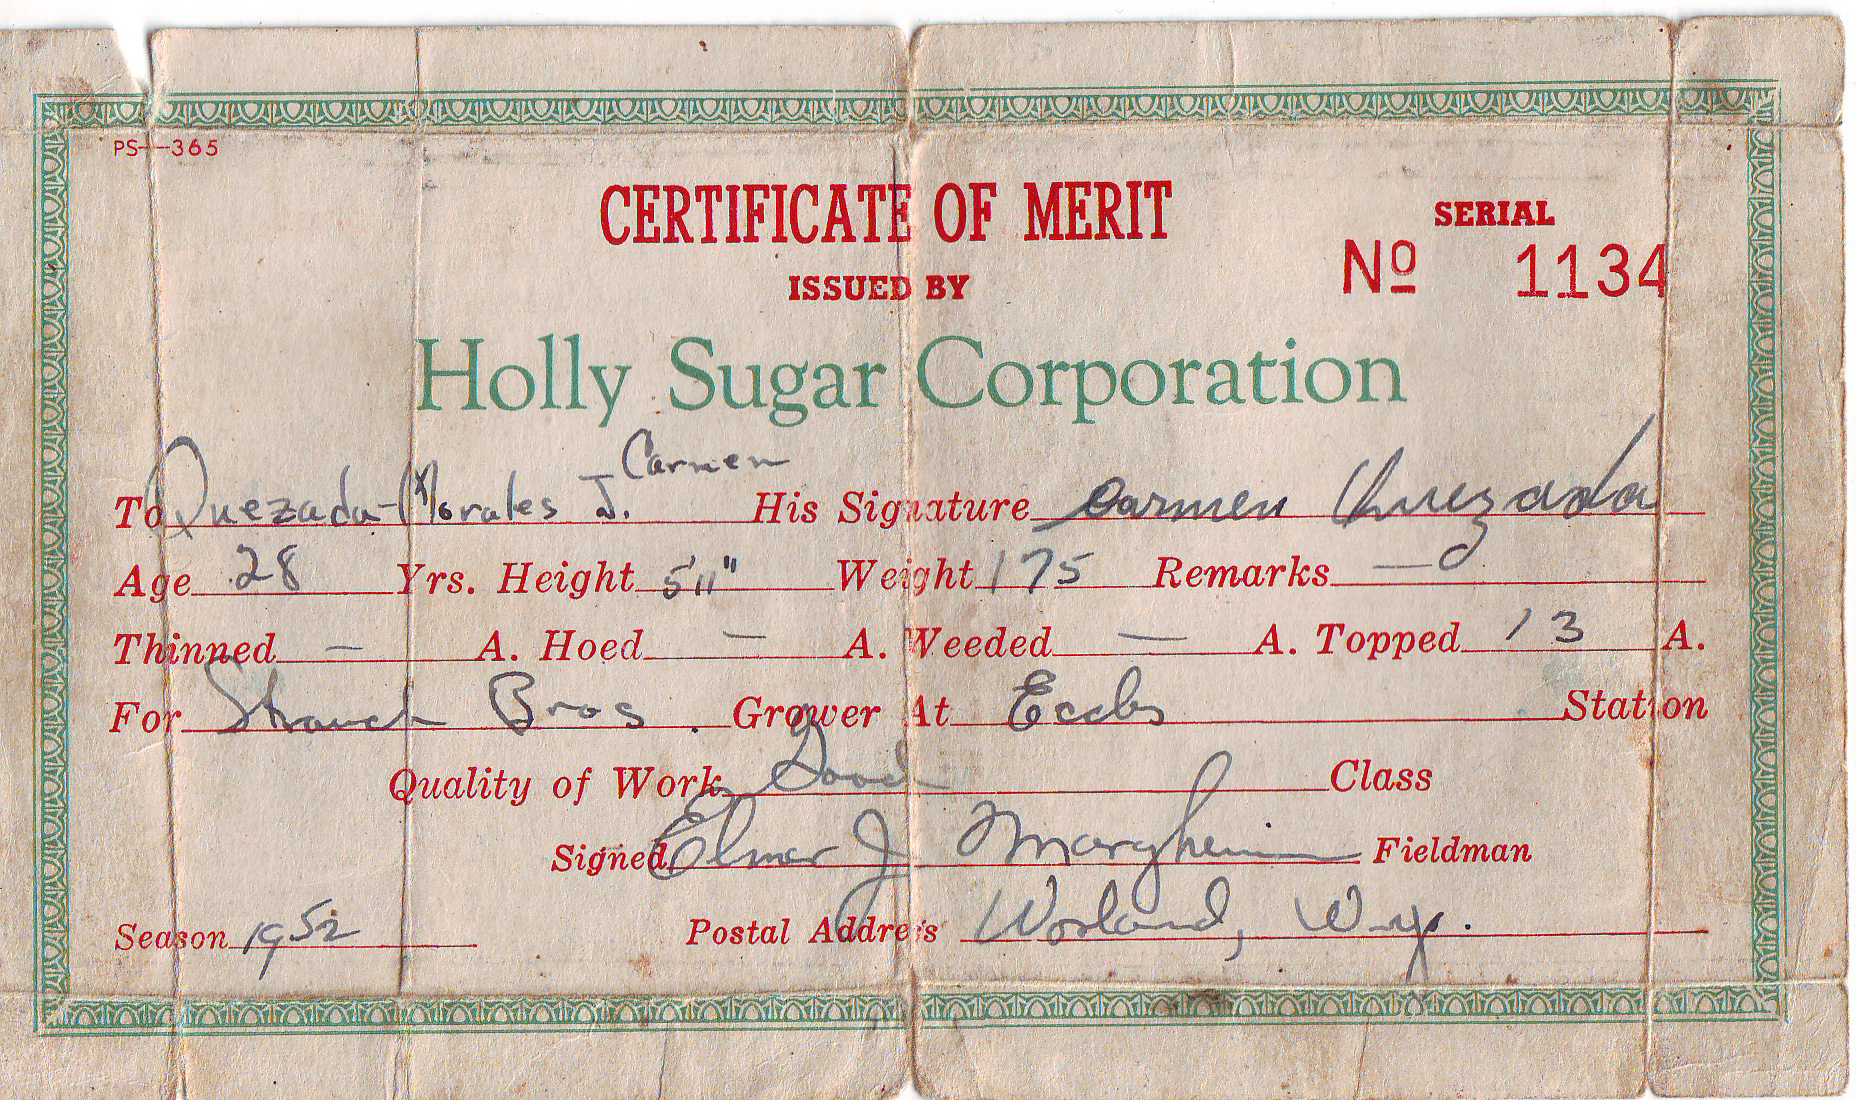 PS--365
CERTIFICATE OF MERIT
SERIAL
ISSUED BY
Nº 1134
Holly Sugar Corporation
Carmen
To Quezada-Morales J. His Signature Carmen Quezada
Age 28 Yrs. Height 5'11" Weight 175 Remarks —
Thinned — A. Hoed — A. Weeded — A. Topped 13 A.
For Strauch Bros Grower At Eccles Station
Quality of Work Good Class
Signed Elmer J Margheim Fieldman
Season 1952 Postal Address Worland, Wyo.